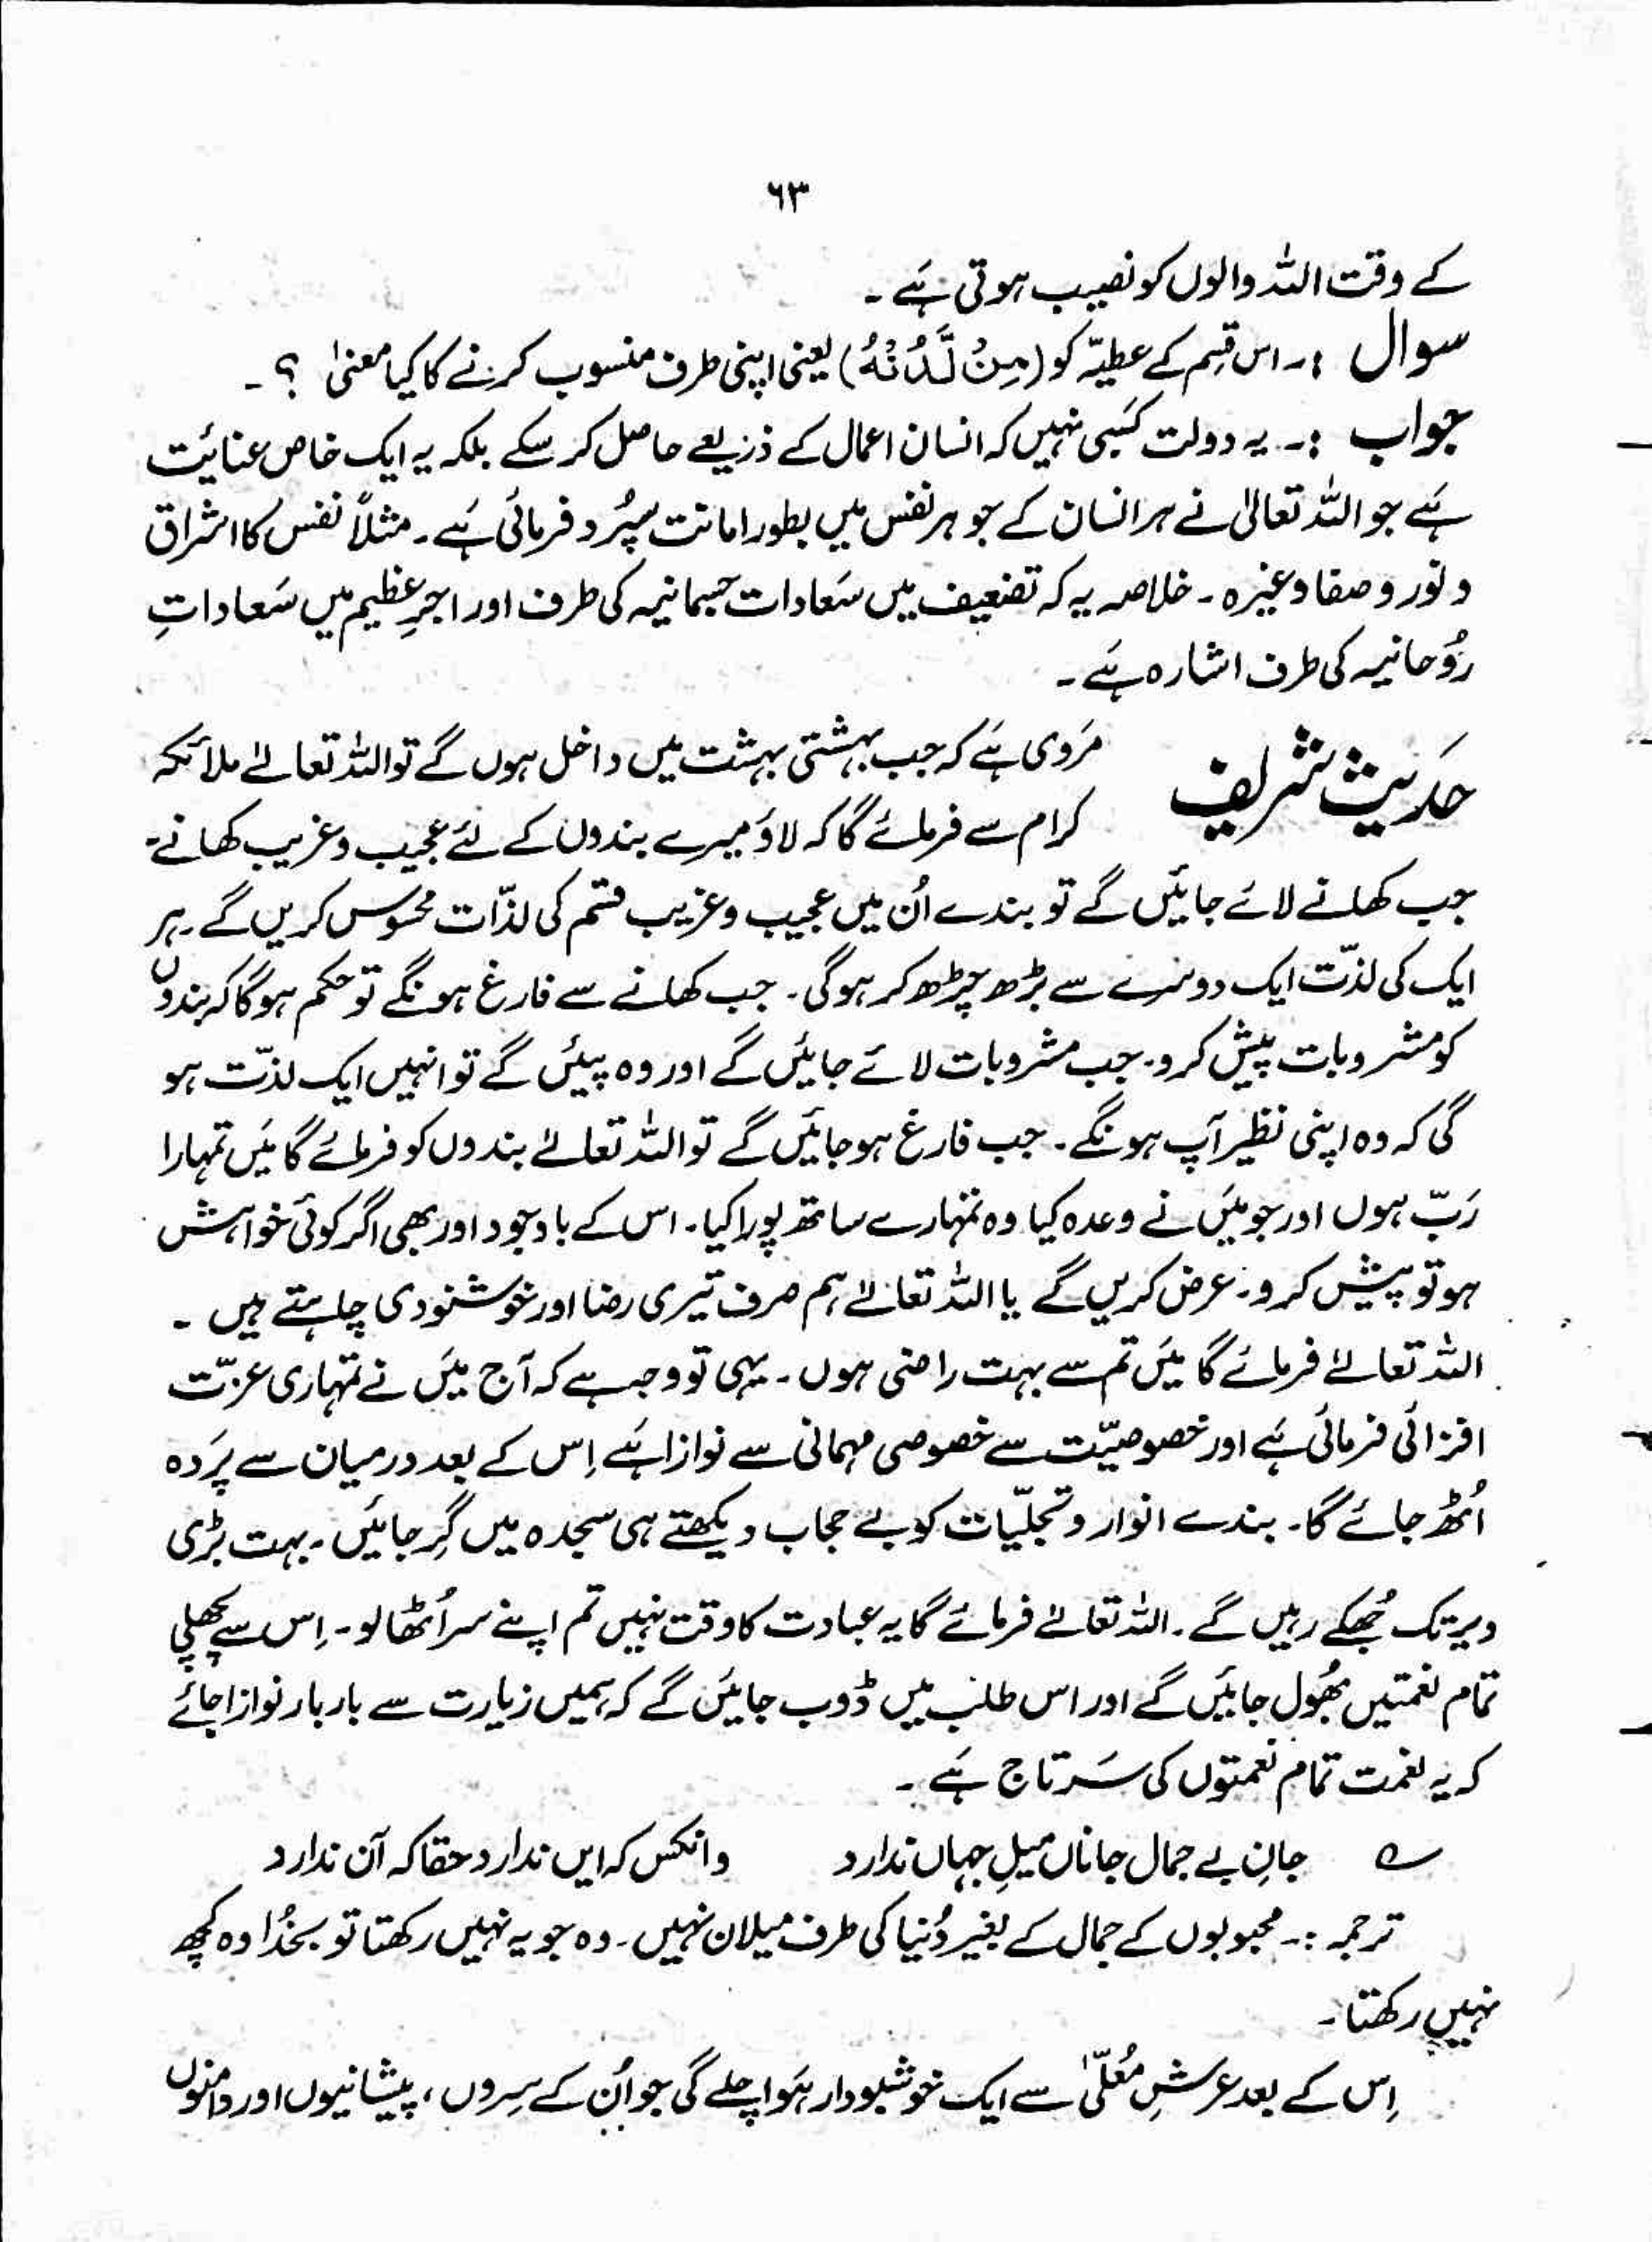 ۶۳
کے وقت اللہ والوں کو نصیب ہوتی ہَے ۔
سوال :۔ اس قِسم کے عطیّہ کو (مِنْ لَّدُنْهُ) یعنی اپنی طرف منسوب کرنے کا کیا معنیٰ ؟ ۔
جواب :۔ یہ دولت کَسبی نہیں کہ انسان اعمال کے ذریعے حاصل کر سکے بلکہ یہ ایک خاص عنائیت
ہَے جو اللہ تعالیٰ نے ہر انسان کے جوہر نفس میں بطور امانت سپُرد فرمائی ہَے ۔ مثلاً نفس کا اشراق
و نور و صفا وغیرہ ۔ خلاصہ یہ کہ تضعیف میں سَعادات جسمانیہ کی طرف اور اجرِ عظیم میں سَعاداتِ
رُوحانیہ کی طرف اشارہ ہَے ۔
حَدیث شریف
مَروی ہَے کہ جب بہشتی بہشت میں داخل ہوں گے تو اللہ تعالےٰ ملائکہ
کرام سے فرمائے گا کہ لاؤ میرے بندوں کے لئے عجیب و غریب کھانے ۔
جب کھانے لائے جائیں گے تو بندے اُن میں عجیب و غریب قسم کی لذّات محسوس کریں گے ۔ ہر
ایک کی لذّت ایک دوسرے سے بڑھ چڑھ کر ہوگی ۔ جب کھانے سے فارغ ہونگے تو حکم ہوگا کہ بندوں
کو مشروبات پیش کرو ۔ جب مشروبات لائے جائیں گے اور وہ پیئں گے تو انہیں ایک لذّت ہو
گی کہ وہ اپنی نظیر آپ ہونگے ۔ جب فارغ ہو جائیں گے تو اللہ تعالےٰ بندوں کو فرمائے گا مَیں تمہارا
رَبّ ہوں اور جو مَیں نے وعدہ کیا وہ تمہارے ساتھ پورا کیا ۔ اس کے باوجود اور بھی اگر کوئی خواہش
ہو تو پیش کرو ۔ عرض کریں گے یا اللہ تعالےٰ ہم صرف تیری رضا اور خوشنودی چاہتے ہیں ۔
اللہ تعالےٰ فرمائے گا مَیں تم سے بہت راضی ہوں ۔ یہی تو وجہ ہے کہ آج مَیں نے تمہاری عزّت
افزائی فرمائی ہَے اور خصوصیّت سے خصوصی مہمانی سے نوازا ہَے اِس کے بعد درمیان سے پَردہ
اُٹھ جائے گا ۔ بندے انوار و تجلّیات کو بے حجاب دیکھتے ہی سجدہ میں گِر جائیں ۔ بہت بڑی
دیر تک جُھکے رہیں گے ۔ اللہ تعالےٰ فرمائے گا یہ عبادت کا وقت نہیں تم اپنے سر اُٹھا لو ۔ اِس سے پچھلی
تمام نعمتیں بُھول جائیں گے اور اس طلب میں ڈوب جائیں گے کہ ہمیں زیارت سے بار بار نوازا جائے
کہ یہ نعمت تمام نعمتوں کی سَرتاج ہَے ۔
؎ جانِ بے جمال جاناں میلِ جہاں ندارد وانکس کہ ایں ندارد حقا کہ آن ندارد
ترجمہ :۔ محبوبوں کے جمال کے بغیر دُنیا کی طرف میلان نہیں ۔ وہ جو یہ نہیں رکھتا تو بخُدا وہ کچھ
نہیں رکھتا ۔
اِس کے بعد عرشِ مُعلّیٰ سے ایک خوشبودار ہَوا چلے گی جو اُن کے سِروں ، پیشانیوں اور دامنوں